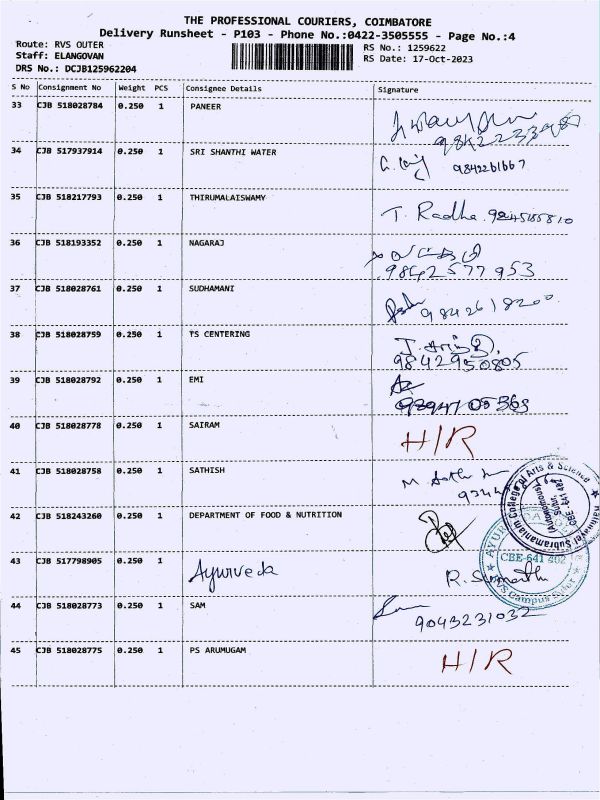 THE PROFESSIONAL COURIERS, COIMBATORE
Delivery Runsheet - P103 - Phone No.:0422-3505555 - Page No.:4
Route: RVS OUTER
RS No.: 1259622
Staff: ELANGOVAN
RS Date: 17-Oct-2023
DRS No.: DCJB125962204
S No Consignment No Weight PCS Consignee Details Signature
33 CJB 518028784 0.250 1 PANEER
34 CJB 517937914 0.250 1 SRI SHANTHI WATER 9842261667
35 CJB 518217793 0.250 1 THIRUMALAISWAMY T. Radha
36 CJB 518193352 0.250 1 NAGARAJ
9842577953
37 CJB 518028761 0.250 1 SUDHAMANI 9842618200
38 CJB 518028759 0.250 1 TS CENTERING
9842950805
39 CJB 518028792 0.250 1 EMI
40 CJB 518028778 0.250 1 SAIRAM H/R
41 CJB 518028758 0.250 1 SATHISH
42 CJB 518243260 0.250 1 DEPARTMENT OF FOOD & NUTRITION
43 CJB 517798905 0.250 1 Ayurveda R. Sumathi
CBE-641 402
RVS Campus Sulur
44 CJB 518028773 0.250 1 SAM
9043231032
45 CJB 518028775 0.250 1 PS ARUMUGAM H/R